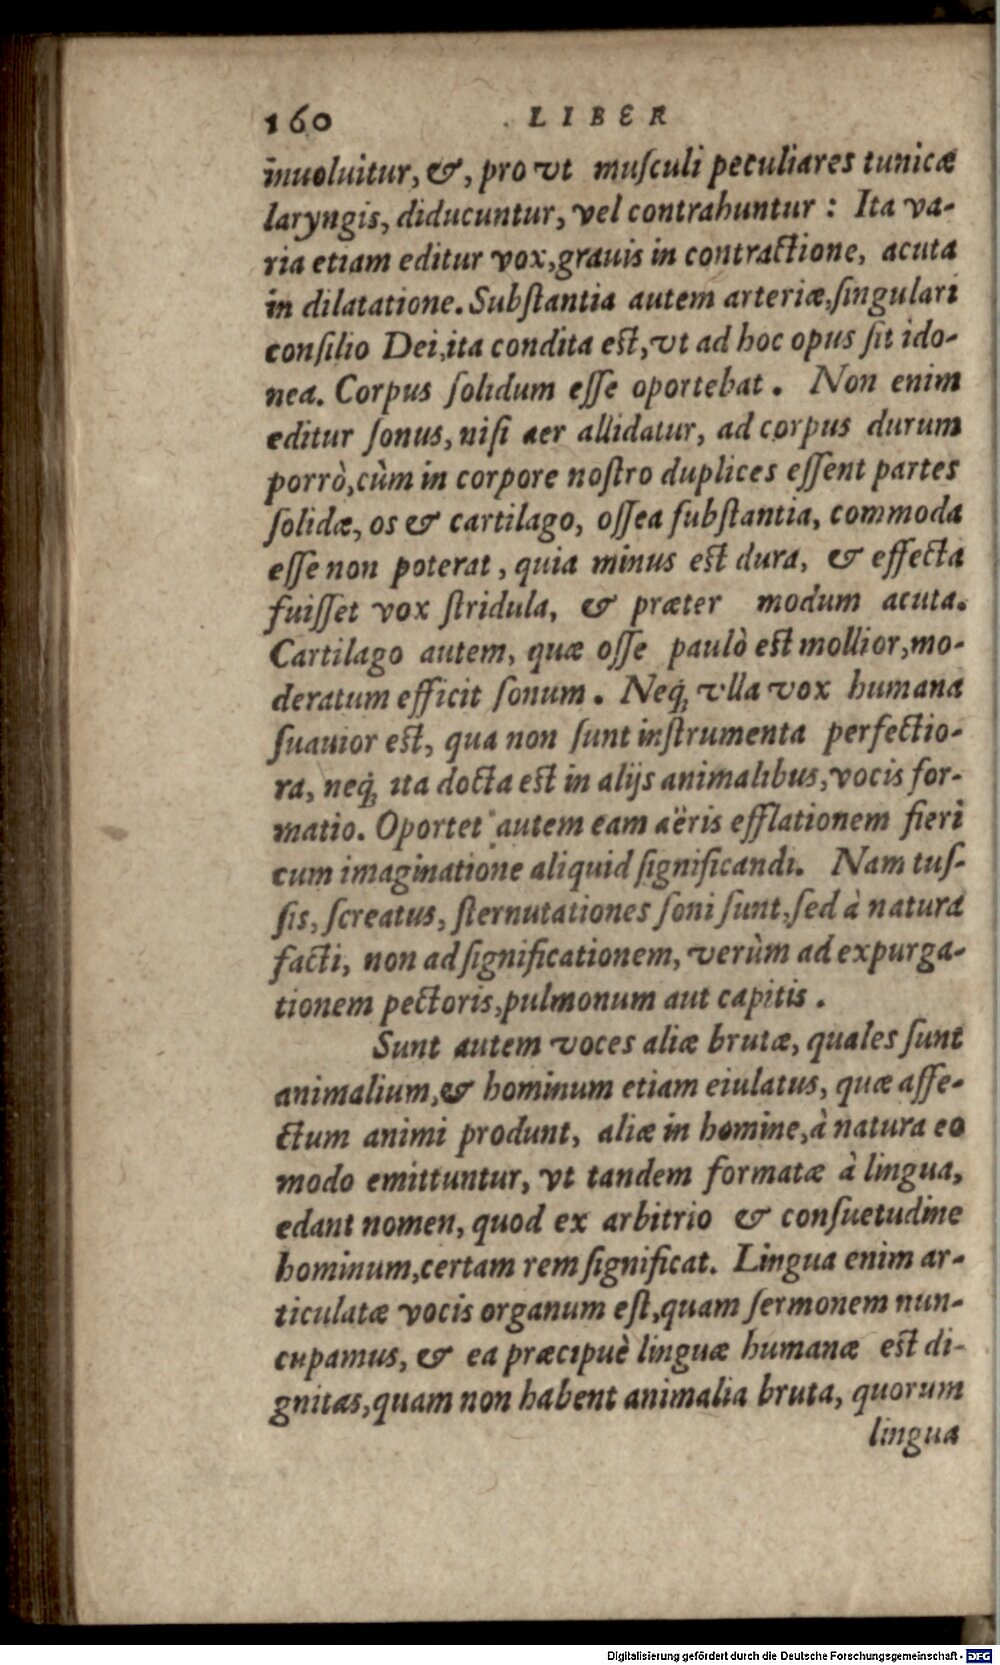 160 LIBER
inuoluitur, &, pro vt muſculi peculiares tunicæ
laryngis, diducuntur, vel contrahuntur : Ita va-
ria etiam editur vox, grauis in contractione, acuta
in dilatatione. Subſtantia autem arteriæ, ſingulari
conſilio Dei, ita condita eſt, vt ad hoc opus ſit ido-
nea. Corpus ſolidum eſſe oportebat . Non enim
editur ſonus, niſi aer allidatur, ad corpus durum
porrò, cùm in corpore noſtro duplices eſſent partes
ſolidæ, os & cartilago, oſſea ſubſtantia, commoda
eſſe non poterat, quia minus eſt dura, & effecta
fuiſſet vox ſtridula, & præter modum acuta.
Cartilago autem, quæ oſſe paulò eſt mollior, mo-
deratum efficit ſonum . Neq́; vlla vox humana
ſuauior eſt, qua non ſunt inſtrumenta perfectio-
ra, neq́; ita docta eſt in alijs animalibus, vocis for-
matio. Oportet autem eam aëris efflationem fieri
cum imaginatione aliquid ſignificandi. Nam tuſ-
ſis, ſcreatus, ſternutationes ſoni ſunt, ſed à natura
facti, non ad ſignificationem, verùm ad expurga-
tionem pectoris, pulmonum aut capitis .
Sunt autem voces aliæ brutæ, quales ſunt
animalium, & hominum etiam eiulatus, quæ affe-
ctum animi produnt, aliæ in homine, à natura eo
modo emittuntur, vt tandem formatæ à lingua,
edant nomen, quod ex arbitrio & conſuetudine
hominum, certam rem ſignificat. Lingua enim ar-
ticulatæ vocis organum eſt, quam ſermonem nun-
cupamus, & ea præcipuè linguæ humanæ eſt di-
gnitas, quam non habent animalia bruta, quorum
lingua
Digitalisierung gefördert durch die Deutsche Forschungsgemeinschaft - DFG